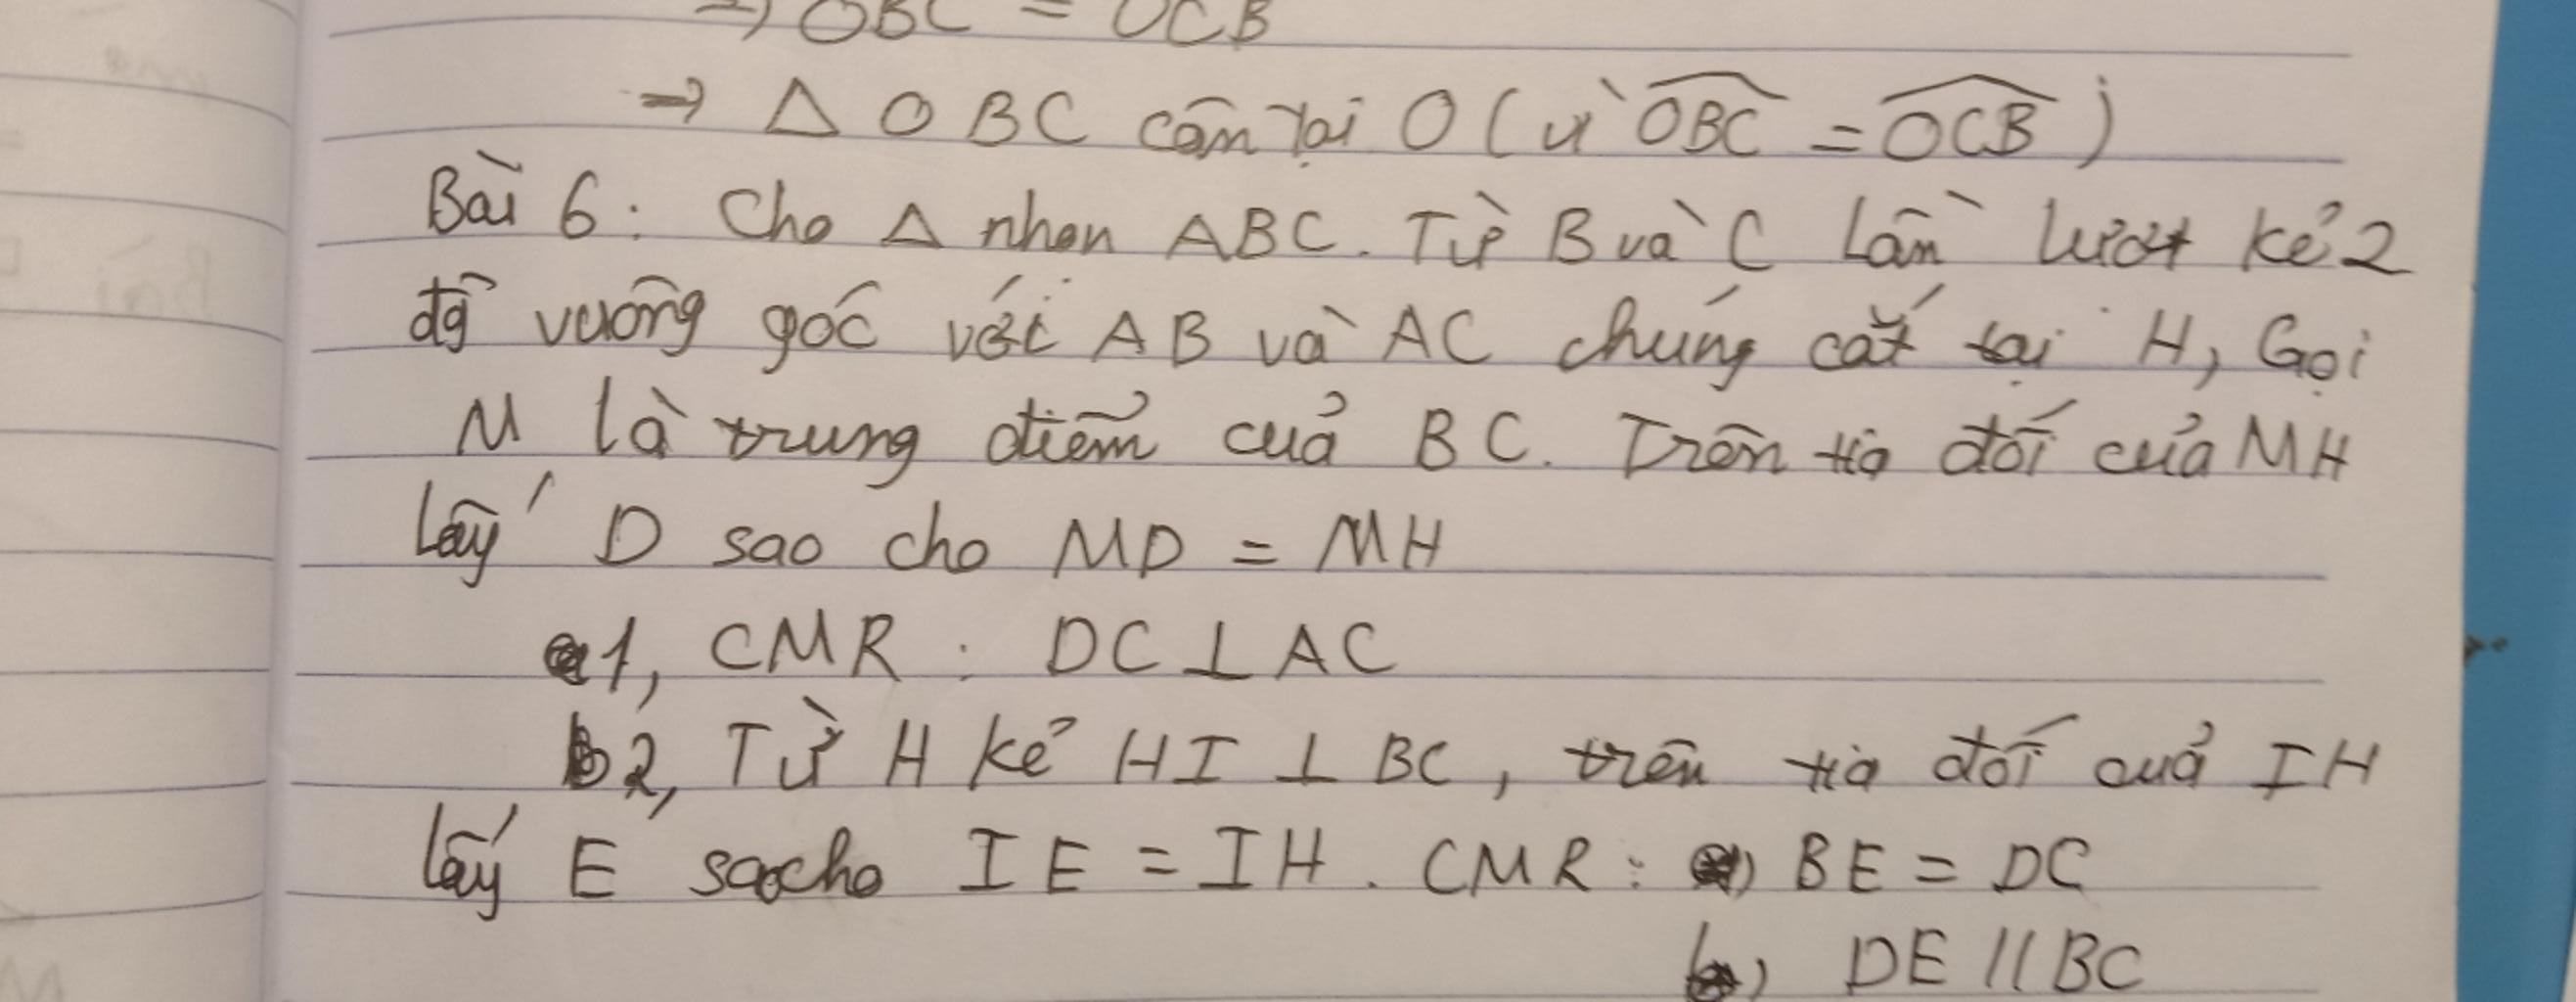 => OBC = OCB
=> △ OBC cân tại O (vì OBC = OCB)
Bài 6: Cho △ nhọn ABC. Từ B và C lần lượt kẻ 2
đg vuông góc với AB và AC chúng cắt tại H, Gọi
M là trung điểm của BC. Trên tia đối của MH
lấy D sao cho MD = MH
1, CMR: DC ⊥ AC
2, Từ H kẻ HI ⊥ BC, trên tia đối của IH
lấy E sao cho IE = IH. CMR: a) BE = DC
b) DE // BC